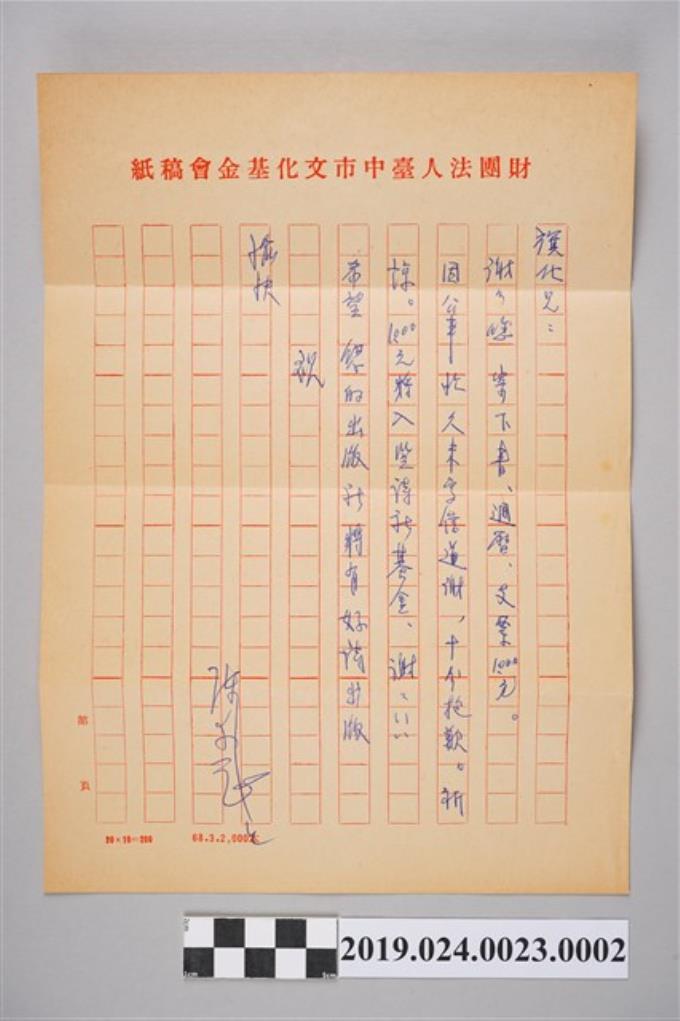 財團法人臺中市文化基金會稿紙
旗化兄：
謝々您寄下書、週曆、支票1,000元。
因公事忙久未去信道謝，十分抱歉。祈
諒。1,000元將入笠詩社基金、謝々
希望 您的出版社將有好詩出版
祝
愉快
陳
第 頁
20×10=200
68.3.2,000本
2019.024.0023.0002